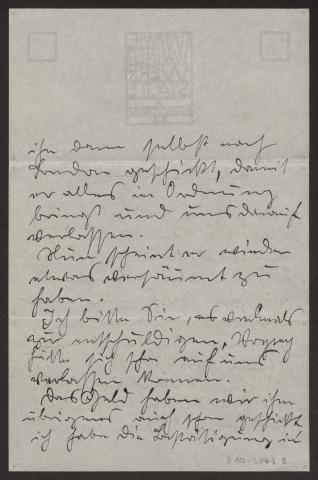 ihn dann selbst nach
London geschickt, damit
er alles in Ordnung
bringt und uns darauf
verlassen.
Nun scheint er wieder
etwas versäumt zu
haben.
Ich bitte Sie, es vielmals
zu entschuldigen,
hätte sich schon auf uns
verlassen können.
Das Geld haben wir ihm
übrigens auch schon geschickt
ich habe die Bestätigung in
D 10-3043 B